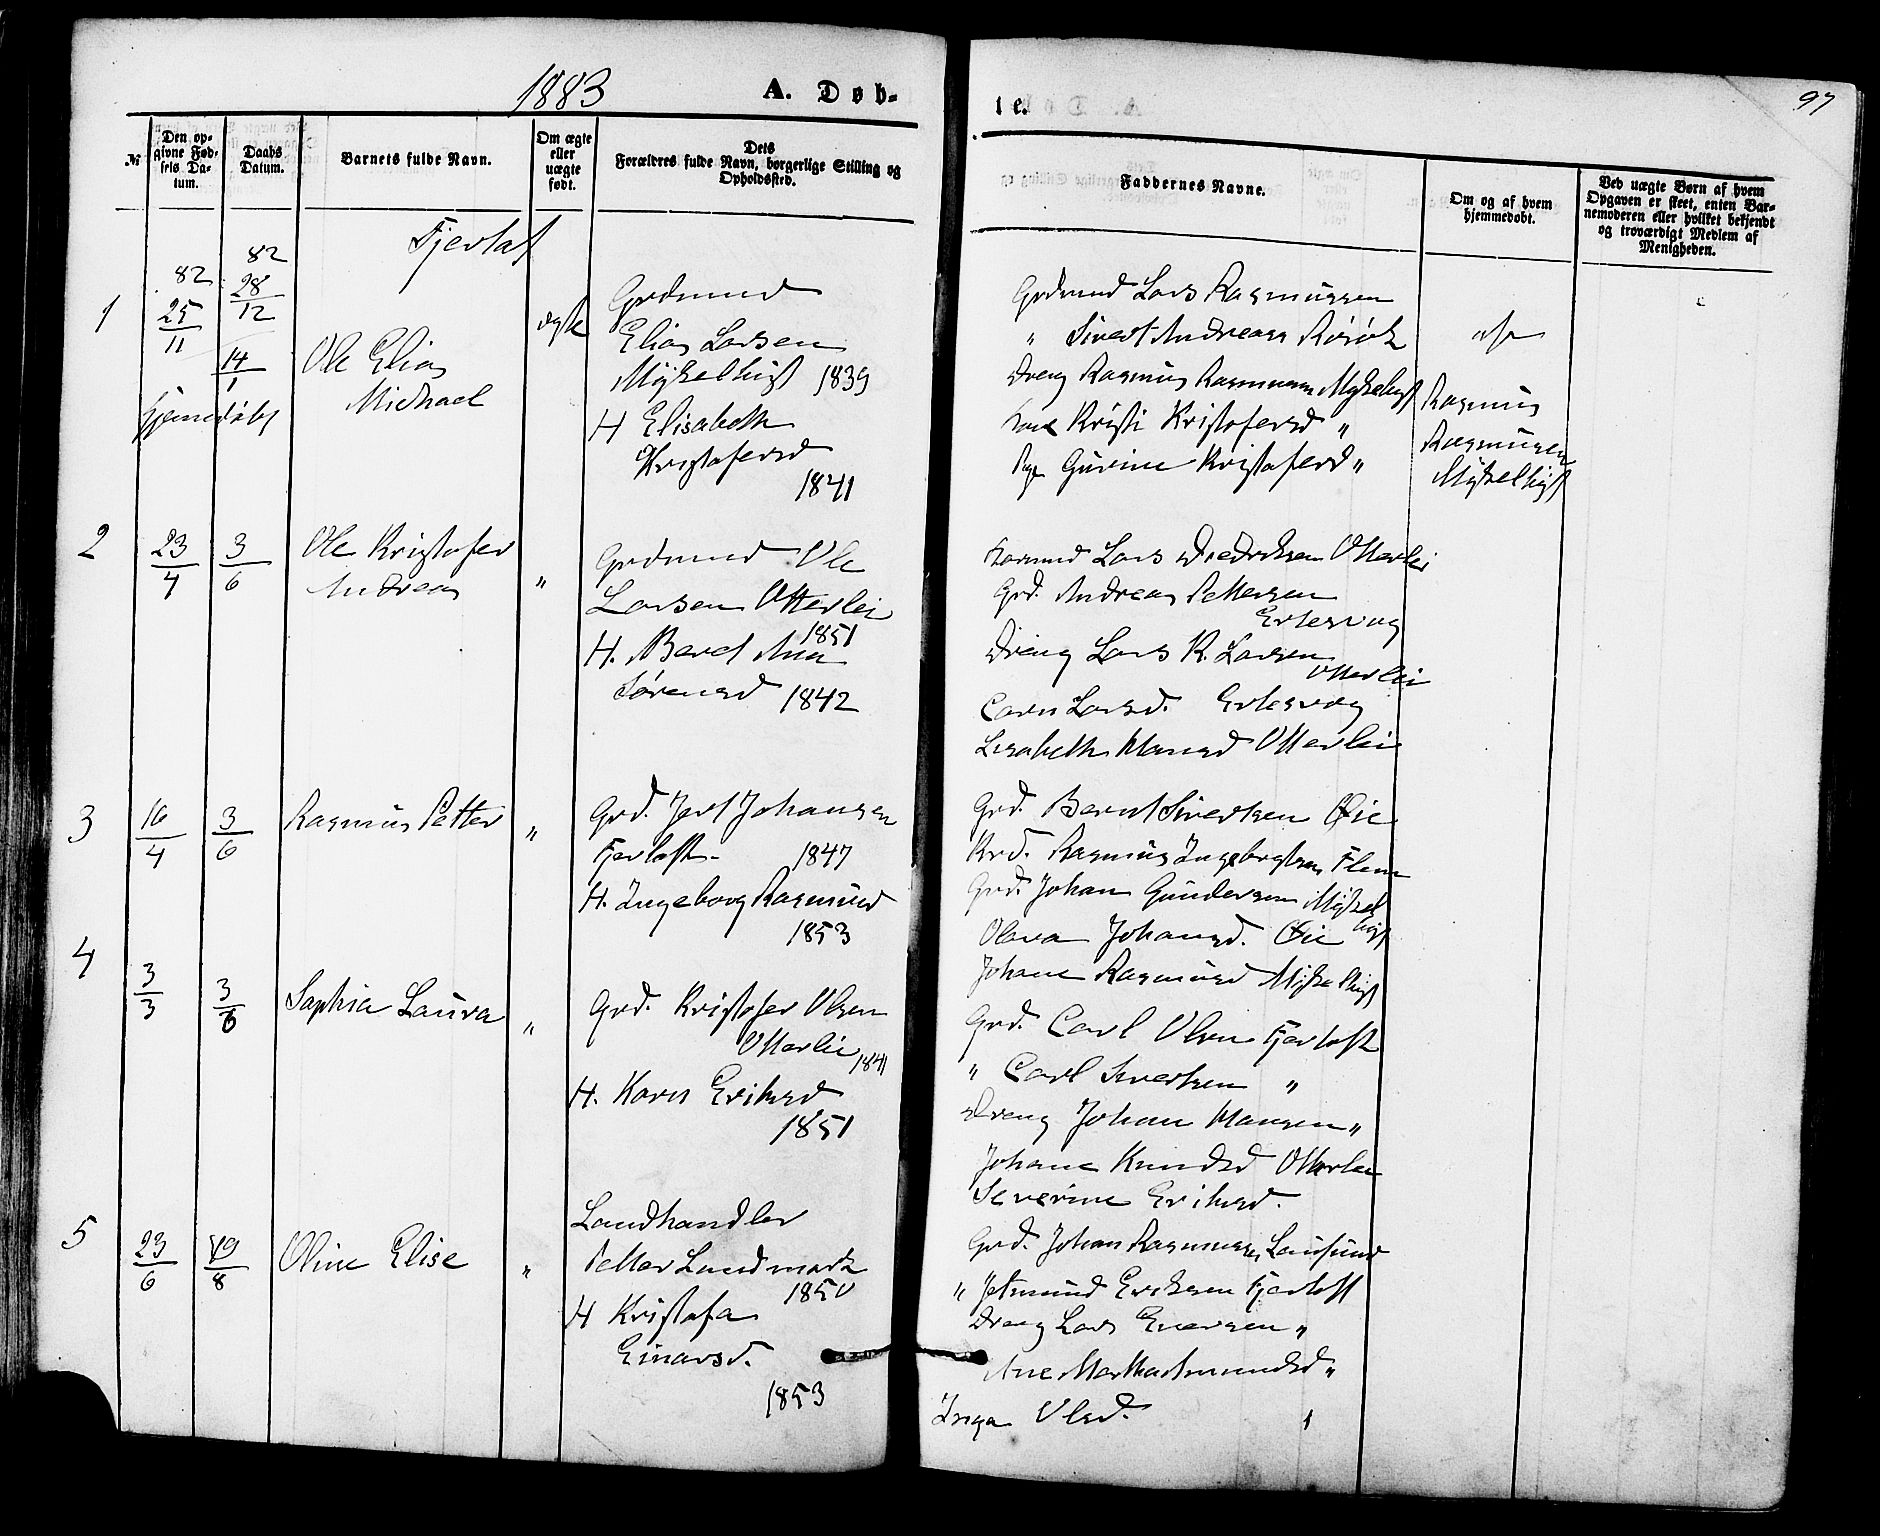 1883
A. Døb-
te.
97
№
Den op-
givne Fød-
sels Da-
tum.
Daabs
Datum.
Barnets fulde Navn.
Om ægte
eller
uægte
født.
Dets
Forældres fulde Navn, borgerlige Stilling og
Opholdssted.
Faddernes Navne.
Om og af hvem
hjemmedøbt.
Ved uægte Børn af hvem
Opgaven er skeet, enten Bar-
nemoderen eller hvilket bekjendt
og troværdigt Medlem af
Menigheden.
Fjertof
1
82
25
11
82
28
12
14
1
hjemdøbt
Ole Elias
Michael
ægte
Grdmand
Elias Larsen
Mykelbust 1839
H Elisabeth
Kristofersd
1841
Grdmand Lars Rasmussen
" Sivert Andreas Rørvik
Dreng Rasmus Rasmussen Mykelbust
Kone Kristi Kristofersd "
Pige Gurine Kristoferd "
Rasmus
Rasmusen
Mykelbust
2
23
4
3
6
Ole Kristofer
Andreas
"
Grdmand Ole
Larsen Otterlei
1851
H. Beret Ana
Sørensd 1842
Lars Diedriksen Otterlei
Grd. Andreas Pettersen
Ertesvag
Dreng Lars R. Larsen
Otterlei
Caren Larsd. Ertesvag
Lisabeth Hansd Otterlei
3
16
4
3
6
Rasmus Petter
"
Grd. Jert Johansen
Fjertoft 1847
H. Ingeborg Rasmusd
1853
Grd. Bernt Sivertsen Øie
Grd. Rasmus Ingebrigtsen Flem
Grd. Johan Gundersen Mykel
bust
Olava Johansd. Øie
Johane Rasmusd Mykelbust
4
3
3
3
6
Sophia Laura
"
Grd. Kristofer Olsen
Otterlei 1841
H. Karn Eriksd
1851
Grd. Carl Olsen Fjertoft
" Carl Sivertsen "
Dreng Johan Hansen "
Johane Knudsd Otterlei
Severine Eriksd.
5
23
6
19
8
Oline Elise
"
Landhandler
Petter Landmark
1850
H Kristofa
Einarsd.
1853
Grd. Johan Rasmussen Lausund
" Jetmund Eriksen Fjertoft
Dreng Lars Enersen "
Ane Martha Amundsd "
Inga Olsd.